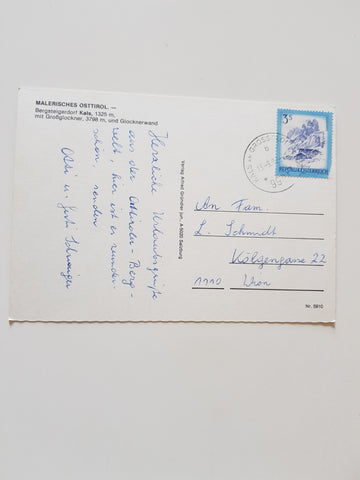 MALERISCHES OSTTIROL. —
Bergsteigerdorf Kals, 1325 m,
mit Großglockner, 3798 m, und Glocknerwand
Herzliche Urlaubsgrüße
aus der Osttiroler Berg-
welt, hier ist es wunder-
schön, senden
u.
Verlag Alfred Gründler jun., A-5020 Salzburg
3 S
REPUBLIK ÖSTERREICH
KALS AM GROSSGLOCKNER
An Fam.
L. Schmidt
Kölgengasse 22
1110 Wien
Nr. 5910